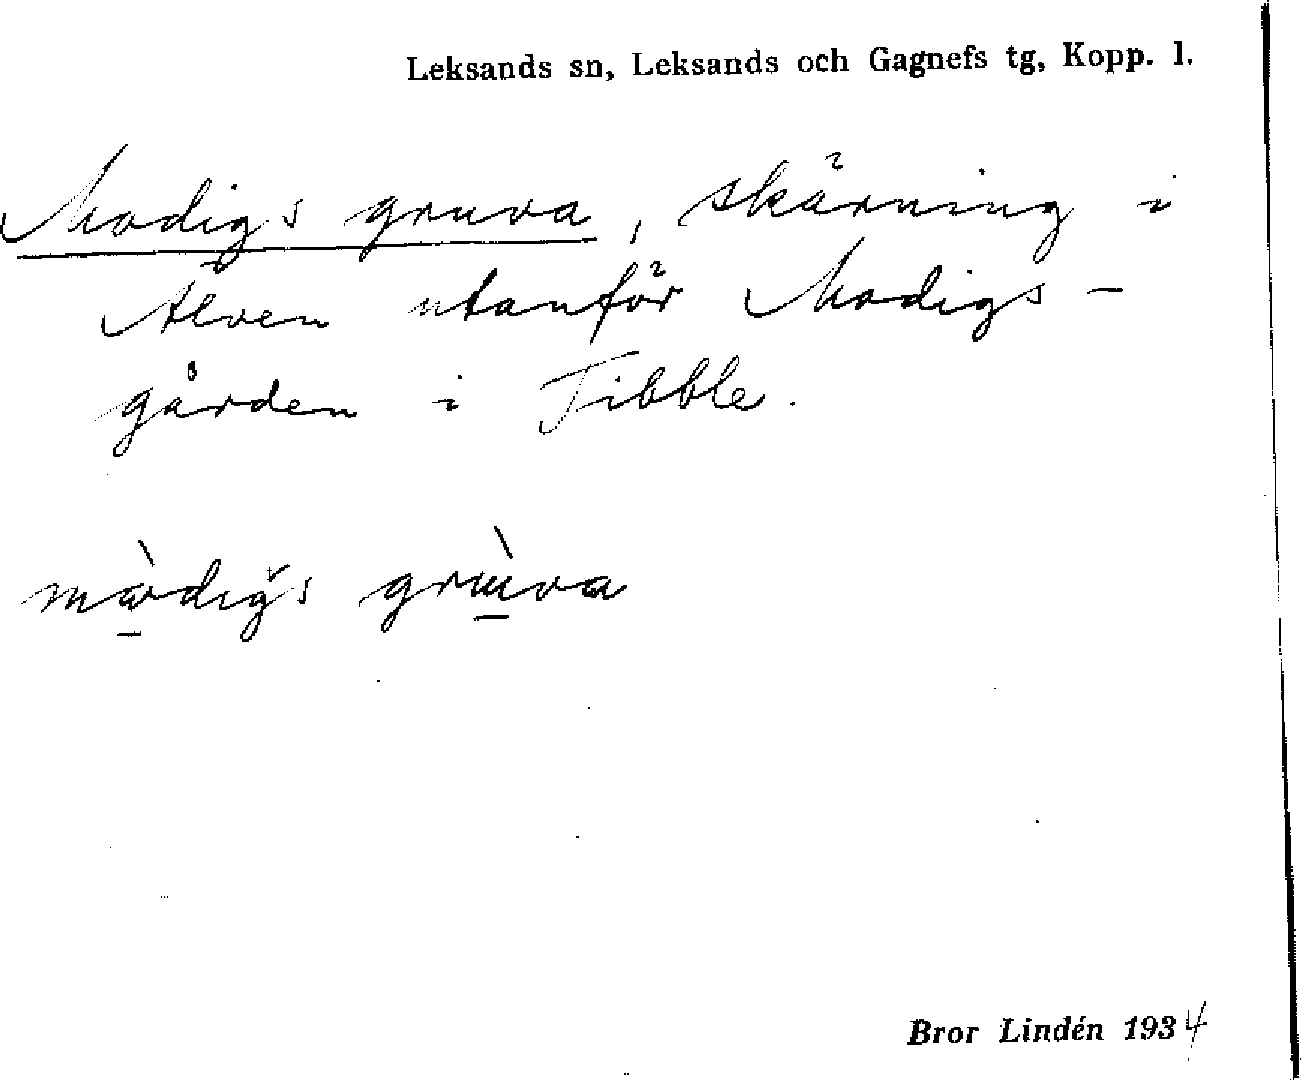 Leksands sn, Leksands och Gagnefs tg, Kopp. l.
Modigs gruva, skärning i
Älven utanför Modigs-
gården i Tibble.
mòdigs grùva
Bror Lindén 1934